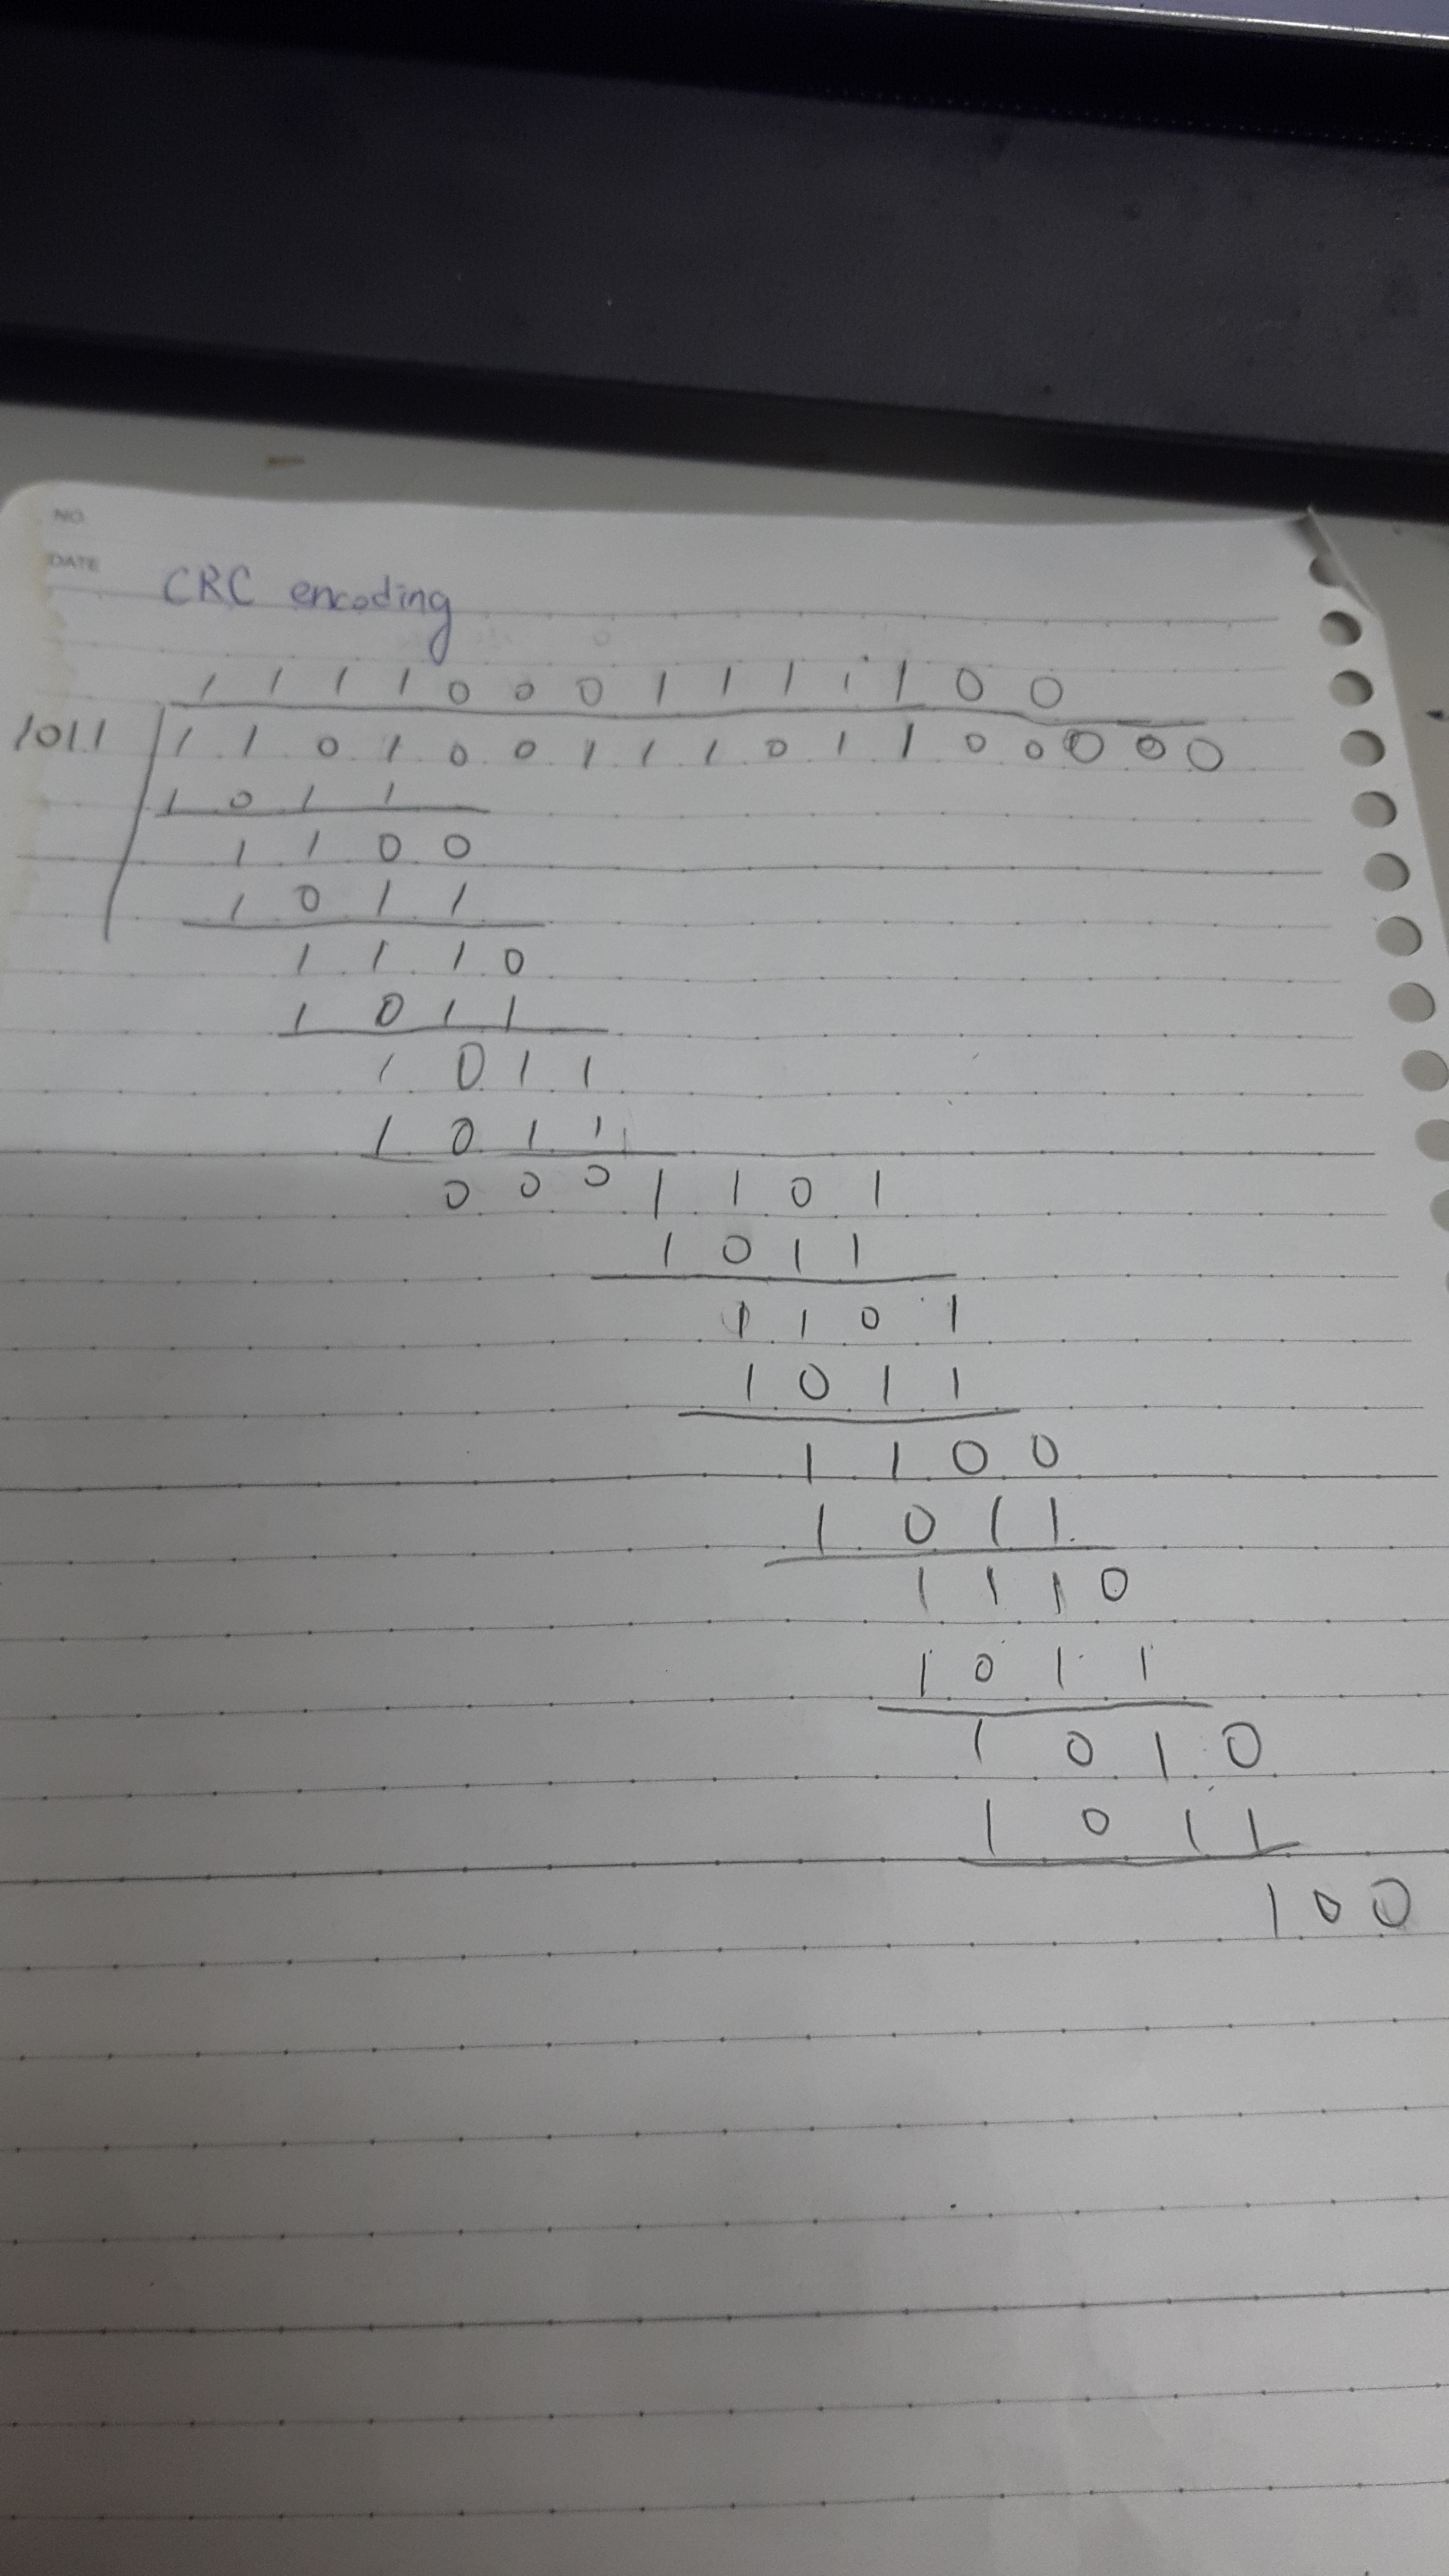 NO.
DATE
CRC encoding
1 1 1 1 0 0 0 1 1 1 1 1 0 0
1011 1 1 0 1 0 0 1 1 1 0 1 1 0 0 0 0 0
1 0 1 1
1 1 0 0
1 0 1 1
1 1 1 0
1 0 1 1
1 0 1 1
1 0 1 1
0 0 0 1 1 0 1
1 0 1 1
1 1 0 1
1 0 1 1
1 1 0 0
1 0 1 1
1 1 1 0
1 0 1 1
1 0 1 0
1 0 1 1
1 0 0